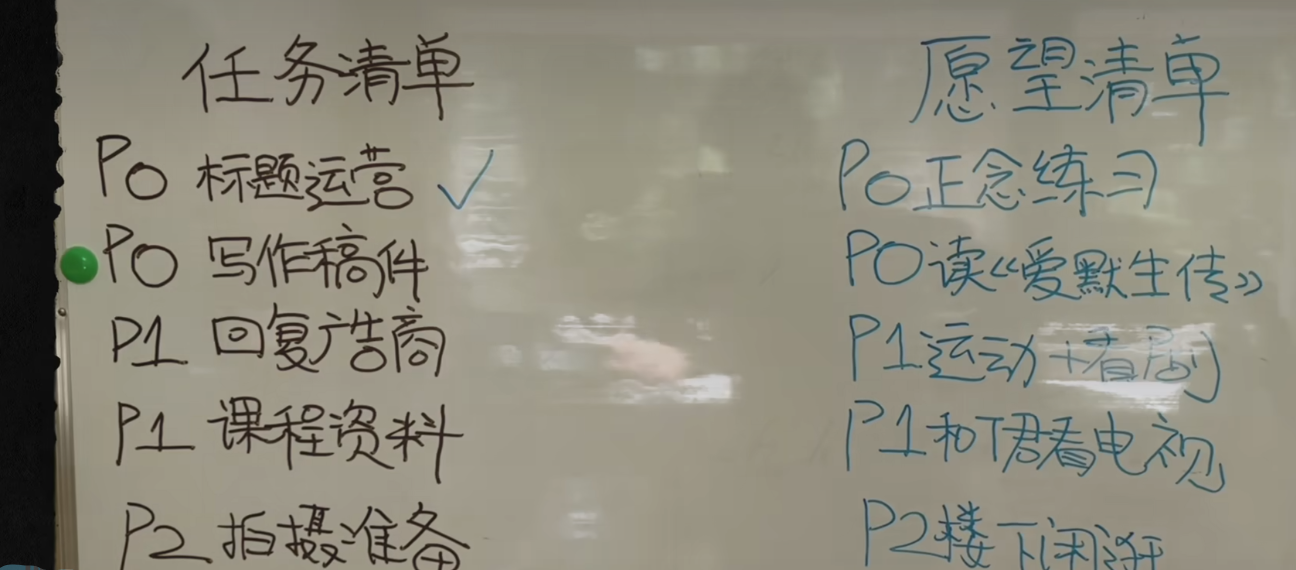 任务清单
P0 标题运营 ✓
P0 写作稿件
P1 回复广告商
P1 课程资料
P2 拍摄准备
愿望清单
P0 正念练习
P0 读《爱默生传》
P1 运动+看剧
P1 和T君看电视
P2 楼下闲逛